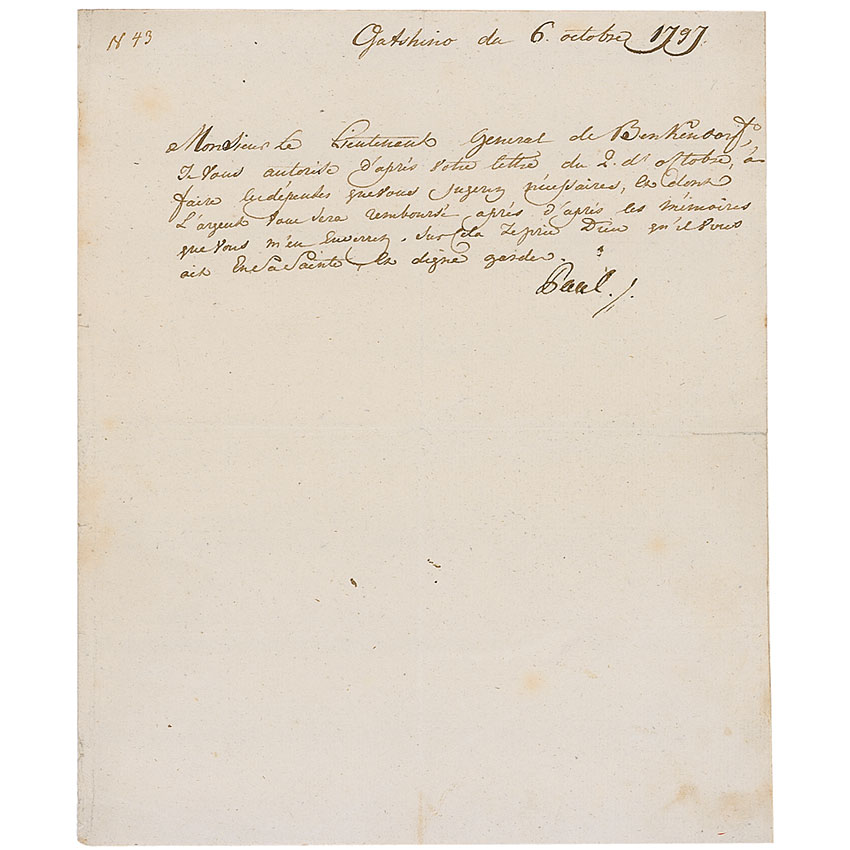 N 43
Gatshino du 6. octobre 1797.
Monsieur le Lieutenant General de Benkendorf,
Je Vous autorise d'après votre lettre du 2. d'octobre, à
faire les dépenses que vous jugerez nécessaires, et dont
L'argent Vous sera remboursé après d'après les mémoires
que vous m'en Enverrez. Sur cela Je prie Dieu qu'il vous
ait En Sa Sainte, et digne garde.
Paul.